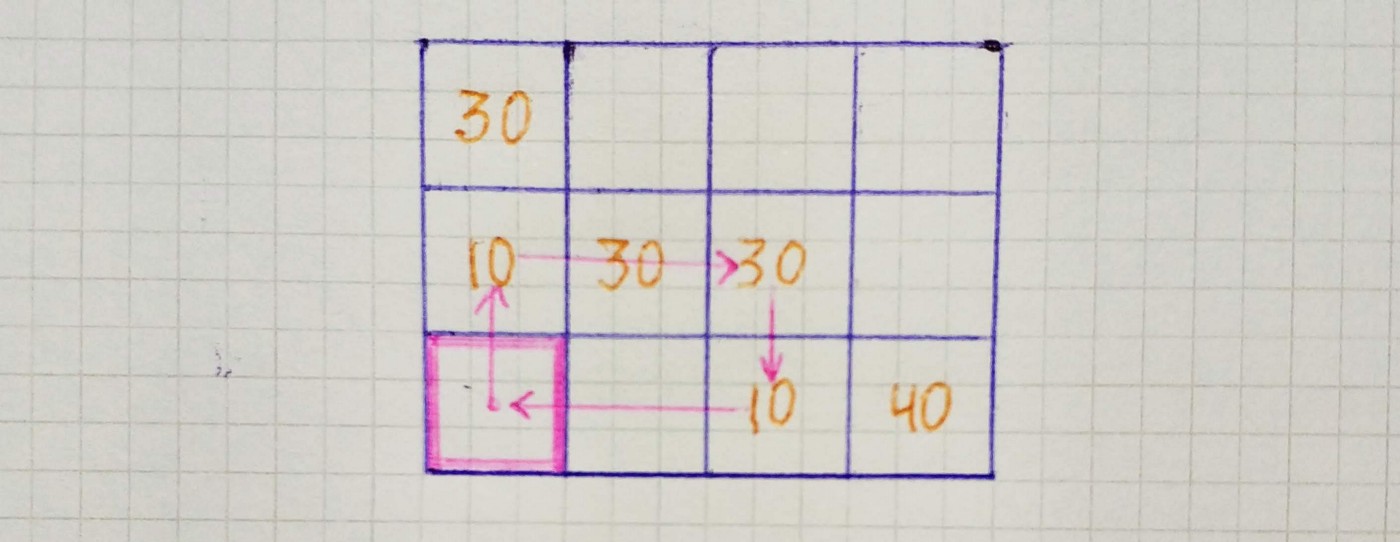 30
10 30 30
10 40